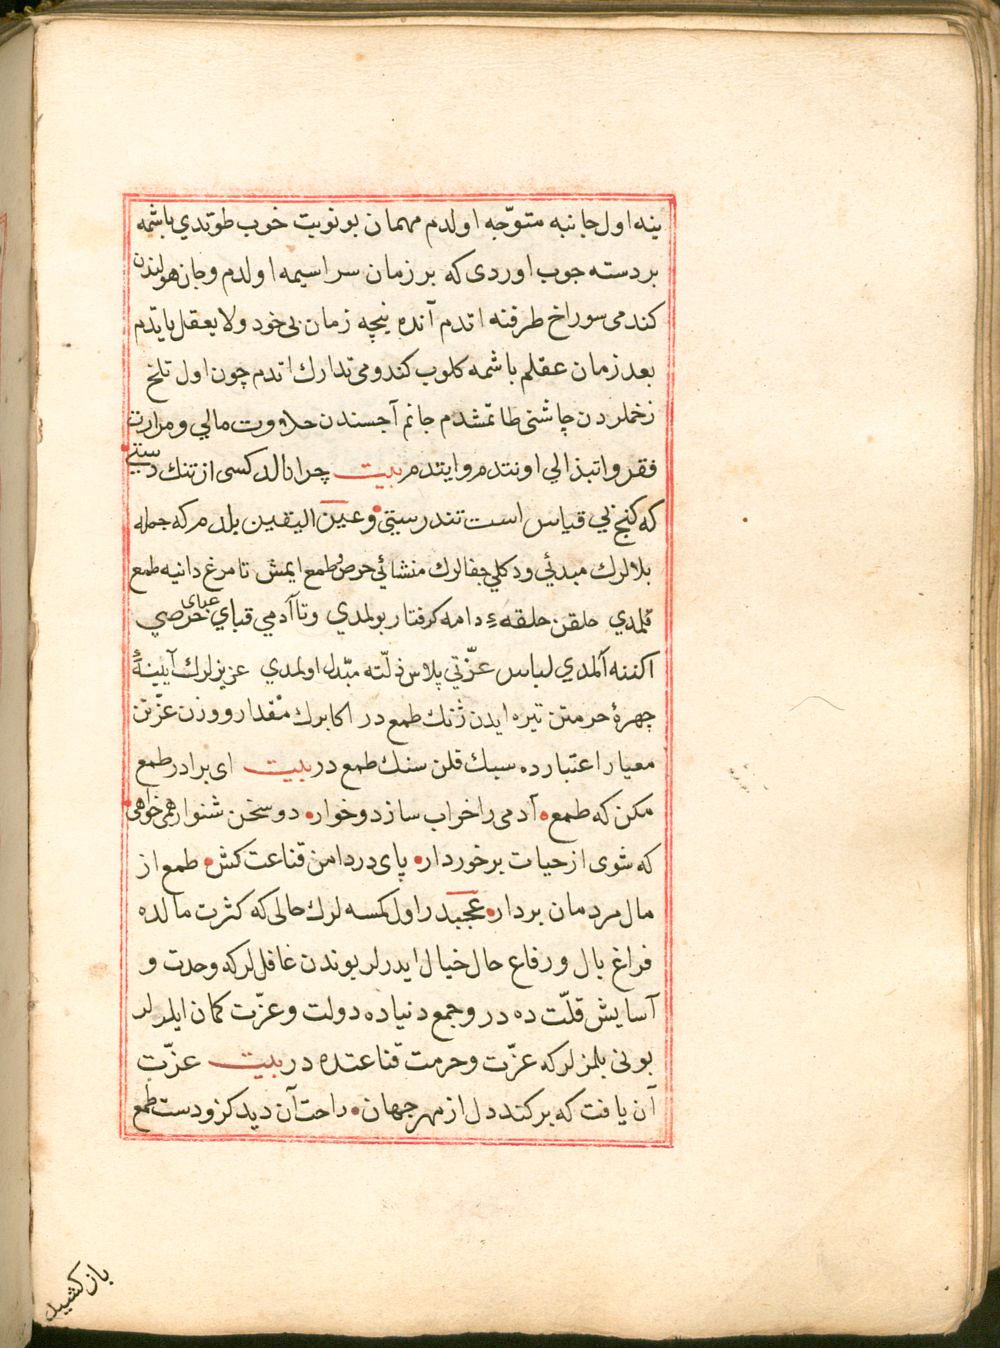 ينه اول جانبه متوّجه اولدم مهمان بو نوبت خوب طوتدي باشمه
بر دسته چوب اوردى كه بر زمان سراسيمه اولدم وجان هولندن
كندمى سوراخ طرفنه اتدم آنده نيچه زمان بى خود ولا يعقل ياتدم
بعد زمان عقلم باشمه كلوب كندومى تدارك اتدم چون اول تلخ
زخملردن چاشنى طاتمشدم جانم آجسندن حلاوت مالي ومرارت
فقر واتبذالي اونتدم وايتدم بيت چرا نالد كسى از تنك دستى
كه كنج بي قياس است تندرستي وعين اليقين بلدم كه جمله
بلالرك مبدئي ودكلي جفالرك منشائي حرص وطمع ايمش تا مرغ دانيه طمع
قلمدي حلقن حلقهء دامه كرفتار بولمدي وتا آدمي قباي عباى حرصي
اكننه آلمدي لباس عزّتي پلاس ذلّته مبّدل اولمدي عزيزلرك آيينهٔ
چهرهٔ حرمتن تيره ايدن ژنك طمع در اكابرك مقدار ووزن عزّتن
معيار اعتبارده سبك قلن سنك طمع در بيت اى برادر طمع
مكن كه طمع آدمى را خراب سازد وخوار دو سخن شنو ار همى خواهى
كه شوى از حيات برخوردار پاى در دامن قناعت كش طمع از
مال مردمان بردار عجبدر اول كمسه لرك حالى كه كثرت مالده
فراغ بال ورفاع حال خيال ايدرلر بوندن غافللر كه وحدت و
آسايش قلّت ده در وجمع دنياده دولت وعزّت كمان ايلرلر
بونى بلمزلر كه عزّت وحرمت قناعتده در بيت عزّت
آن يافت كه بركند دل از مهر جهان راحت آن ديد كزو دست طمع
باز كشيد